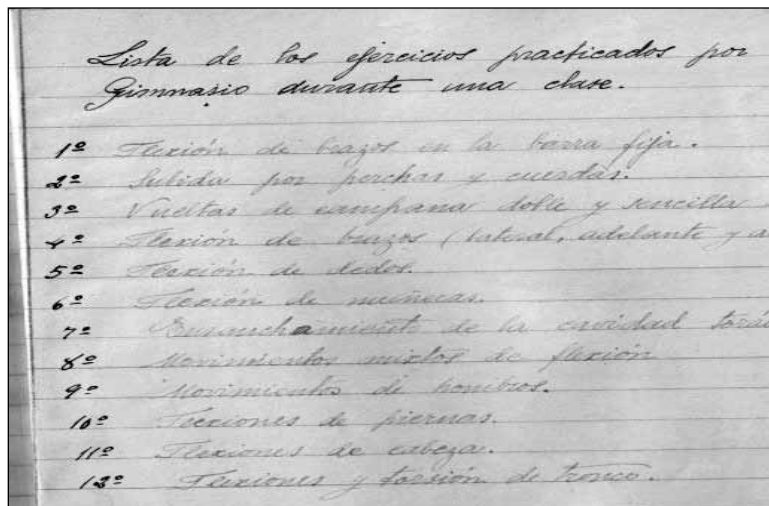 Lista de los ejercicios practicados por
Gimnasio durante una clase.
1º Flexión de brazos en la barra fija.
2º Subida por perchas y cuerdas.
3º Vueltas de campana doble y sencilla
4º Flexión de brazos (lateral, adelante y a
5º Flexión de dedos.
6º Flexión de muñecas.
7º Ensanchamiento de la cavidad torác
8º Movimientos mixtos de flexión
9º Movimientos de hombros.
10º Flexiones de piernas.
11º Flexiones de cabeza.
12º Flexiones y torsión de tronco.